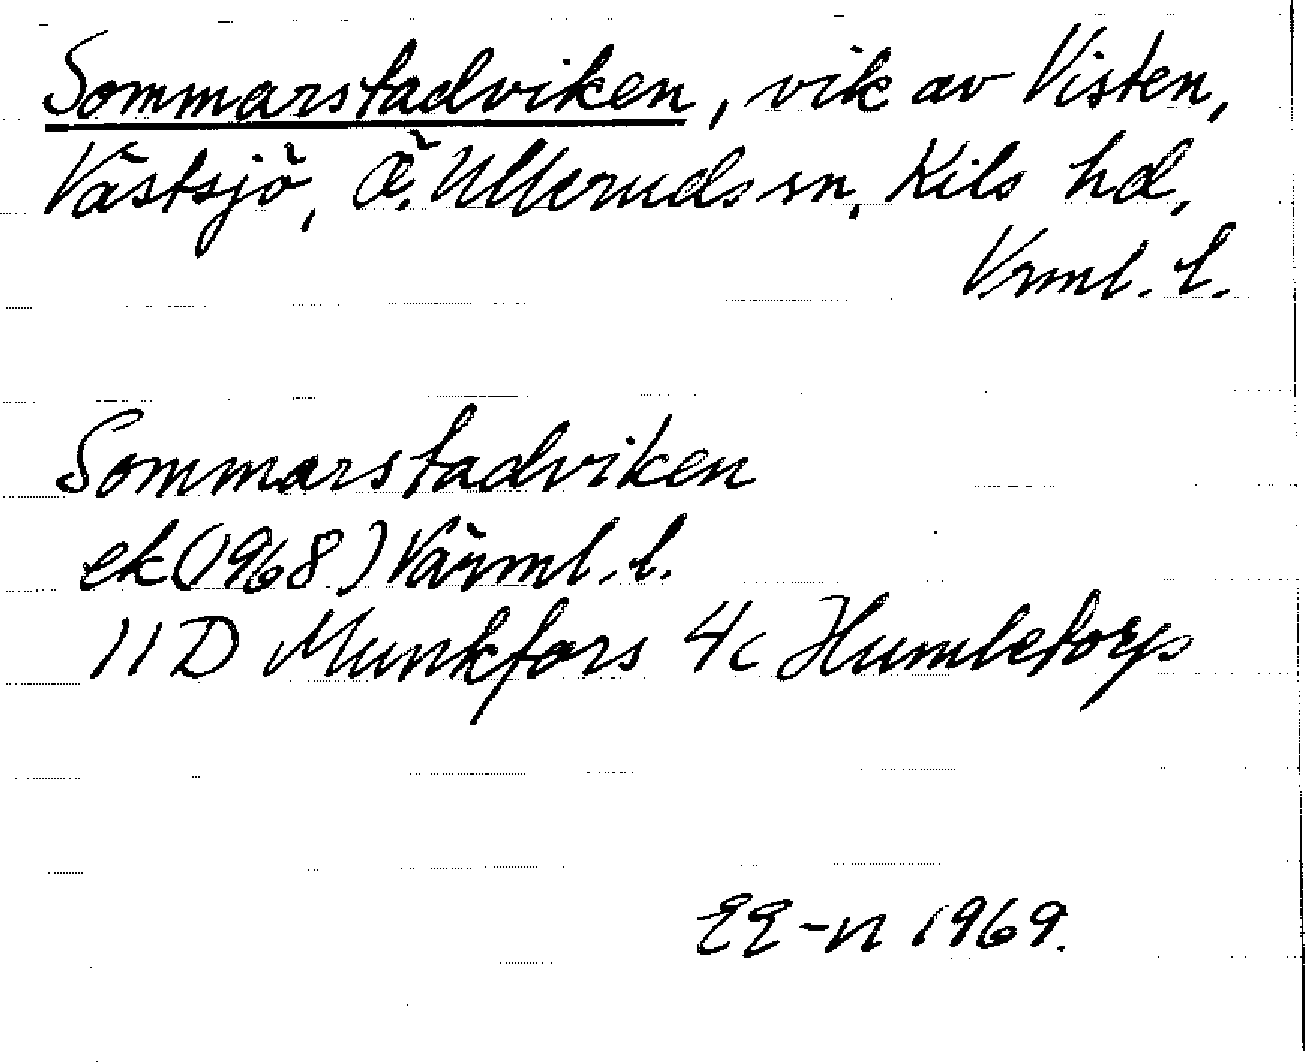 Sommarstadviken, vik av Visten,
Västsjö, Ö. Ulleruds sn, Kils hd,
Vrml. l.
Sommarstadviken
ek (1968) Värml. l.
11D Munkfors 4c Humletorp
EE-n 1969.